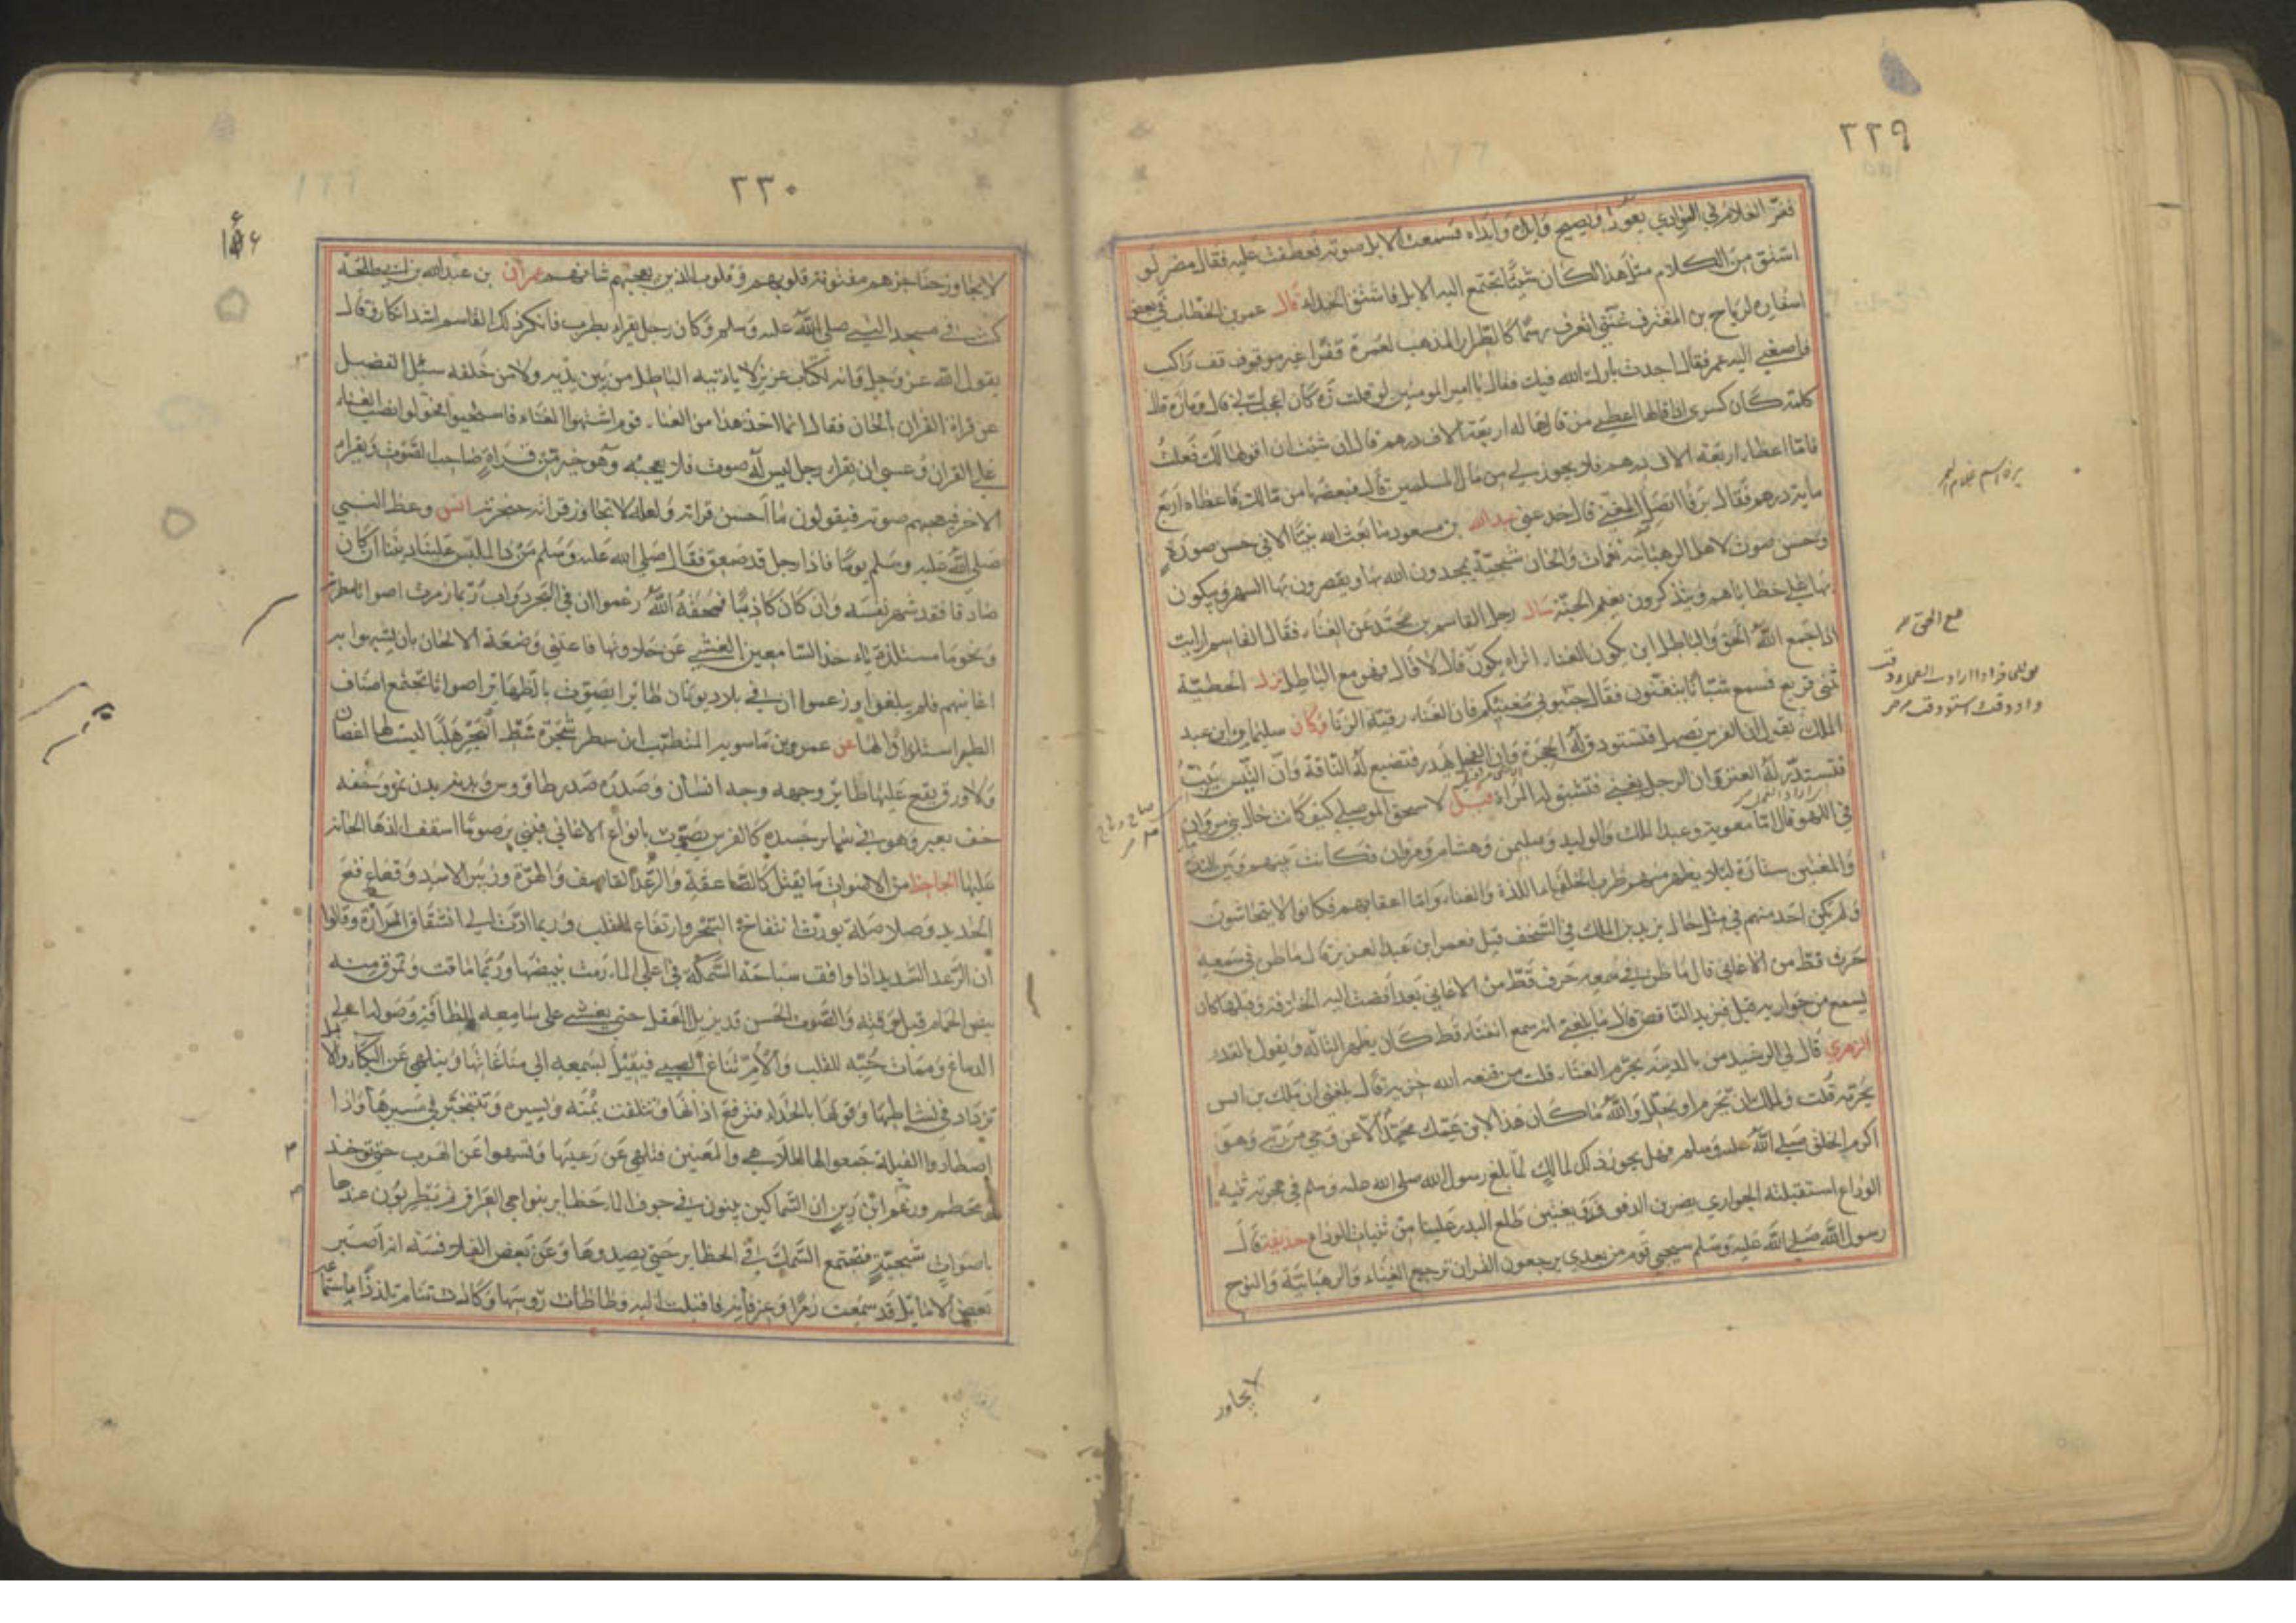 ٢٢٩
ففر الغلام في الوادي يعدو ويصيح وايداه وايداه فسمعت الابل صوته فعطفت عليه فقال مضر لو
اشتق من الكلام مثل هذا لكان شيئا تجتمع اليه الابل فاشتق الحداء قال عمر بن الخطاب في بعض
اسفاره لرباح بن المغترف غنني اتعرف رسما كاطراد المذهب لعمرة قفرا غير موقف راكب
فاصغى اليه عمر فقال اجدت بارك الله فيك فقال يا امير المومنين لو قلت زه كان اعجب الي قال وما زه قال
كلمة كان كسرى اذا قالها اعطى من قالها له اربعة الاف درهم قال ان شئت ان اقولها لك فعلت
فاما اعطاء اربعة الاف درهم فلا يجوز لي من مال المسلمين قال فبعضها من مالك فاعطاه اربع
ماية درهم فقال يرفا اتصل المغني قال خدعني عبدالله بن مسعود ما بعث الله نبيا الا في حسن صورة
وحسن صوت لاهل الرهبانية نغمات والحان شجية يمجدون الله بها ويقصرون بها السهر ويبكون
بها على خطاياهم ويتذكرون نعيم الجنة سال رجل القاسم بن محمد عن الغناء فقال القاسم ارايت
اذا جمع الله الحق والباطل اين يكون الغناء اتراه يكون قال لا قال فهو مع الباطل نزل الحطيئة
ببني قريع فسمع شبانا يتغنون فقال جنبوني مغنيكم فان الغناء رقية الزنا وكان سليمان بن عبد
الملك يقول ان الفرس يصهل فتستودق له الحجرة وان الفحل يهدر فتضبع له الناقة وان التيس ينب
فتستدر له العنز وان الرجل يغني فتشبق له المراة قيل لاسحق الموصلي كيف كانت خال بني مروان
في اللهو قال اما معوية وعبد الملك والوليد وسليمن وهشام ومروان فكانت بينهم وبين الندماء
والمغنين ستارة لئلا يظهر منهم طرب الخلفا للذة والغناء واما اعقابهم فكانوا لا يتحاشون
ولم يكن احد منهم في مثل حال يزيد بن الملك في السخف قيل فعمر ابن عبد العزيز قال ما طن في سمعه
حرف قط من الاغاني قال ما طن في سمعه حرف قط من الاغاني بعد افضت اليه الخلافة وقبلها كان
يسمع من جواريه قيل فيزيد الناقص قال ما بلغني انه سمع الغناء قط كان يظهر التاله ويقول بالقدر
الزهري قال لي الرشيد من بالمدينة يحرم الغناء قلت من قنعه الله خزيه قال بلغني ان ملك بن انس
يحرمه قلت ولملك ان يحرم او يحلل والله ما كان هذا لابن عمك محمد الا عن وحي من ربه وهو
اكرم الخلق صلى الله عليه وسلم فهل يجوز ذلك لمالك لما بلغ رسول الله صلى الله عليه وسلم في هجرته ثنية
الوداع استقبلته الجواري يضربن الدفوف ويغنين طلع البدر علينا من ثنيات الوداع حذيفة قال
رسول الله صلى الله عليه وسلم سيجي قوم من بعدي يرجعون القران ترجيع الغناء والرهبانية والنوح
لا يجاوز
٢٣٠
لا يجاوز حناجرهم مفتونة قلوبهم وقلوب الذين يعجبهم شانهم عمران بن عبدالله بن طلحة
كنت في مسجد النبي صلى الله عليه وسلم وكان رجل يقراء بطرب فانكر ذلك القاسم اشد انكار وقال
يقول الله عز وجل وانه لكتاب عزيز لا ياتيه الباطل من بين يديه ولا من خلفه سئل الفضيل
عن قراة القران بالحان فقال انما اخذ هذا من الغنا قوم اشتهوا الغناء فاستحيوا فحولوا نصب الغناء
على القران وعسى ان يقراء رجل ليس له صوت فلا يعجبه وهو خير من قراة صاحب الصوت ويقراء
الاخر فيعجبهم صوته فيقولون ما احسن قراته ولعله لا تجاوز قراته حنجرته انس وعظ النبي
صلى الله عليه وسلم يوما فاذا رجل قد صعق فقال صلى الله عليه وسلم من ذا الملبس علينا ديننا ان كان
صادقا فقد شهر نفسه وان كان كاذبا فمحقه الله زعموا ان في البحر دواب ربما زمرت اصواتا مطربة
ولحونا مستلذة ياخذ السامعين الغشي عن حلاوتها فاعتنى وضعة الالحان بان يشبهوا بها
اغانيهم فلم يبلغوا وزعموا ان في بلاد يونان طائرا يصوت بالظهاير اصواتا تجتمع اصناف
الطير استلذاذا لها عن عمرو بن ماسويه المتطبب ابن مطر شجرة شط البحر هلبا ليست لها اغصان
ولا ورق يقع عليها طائر وجهه وجه انسان وصدره صدر طاووس وبدنه بدن نمر وخفه
خف بعير وهو في ساير جسده كالفرس يصوت بانواع الاغاني فبنى برصوما اسقف لهذا الحانه
عليها الجاحظ من الاصوات ما يقتل كالصاعقة والرعد القاصف والهرة وزئير الاسد وقعاع قع
الحديد وصلاصله يورث انتفاخ السحر وارتفاع القلب وربما ادت الى انشقاق المرارة وقالوا
ان الرعد الشديد اذا وافق سباحة السمكة في اعلى الماء رمت ببيضها وربما ماتت وتمرق منه
بيض الحمام قبل وقته والصوت الحسن قد يزيل العقل حتى يغشى على سامعه للطافته وصوله الى
الدماغ وممات حبه للقلب والام تناغي الصبي فيقبل لسمعه الى مناغاتها ويتلهى عن البكاء والابل
تزداد في نشاطها وقوتها بالحداء فترفع اذانها وتتلفت يمنة ويسرة وتتبختر في سيرها واذا
اصطادوا الفيلة جمعوا لها الملاهي والمغنين فتلهى عن رعيتها وتسهو عن الهرب حتى توخذ
وتخطم وزعم ان السماكين يبنون في جوف الماء حظاير بنواحي العراق ثم يطربون عندها
باصوات شجية فتجتمع السمك في الحظاير حتى يصيدوها وعن بعض الفلاسفة انه ابصر
بعض الاماثل قد سمعت زمرا وعزفا فاقبلت اليه وطاطات روسها وكادت تنام تلذذا باستماع